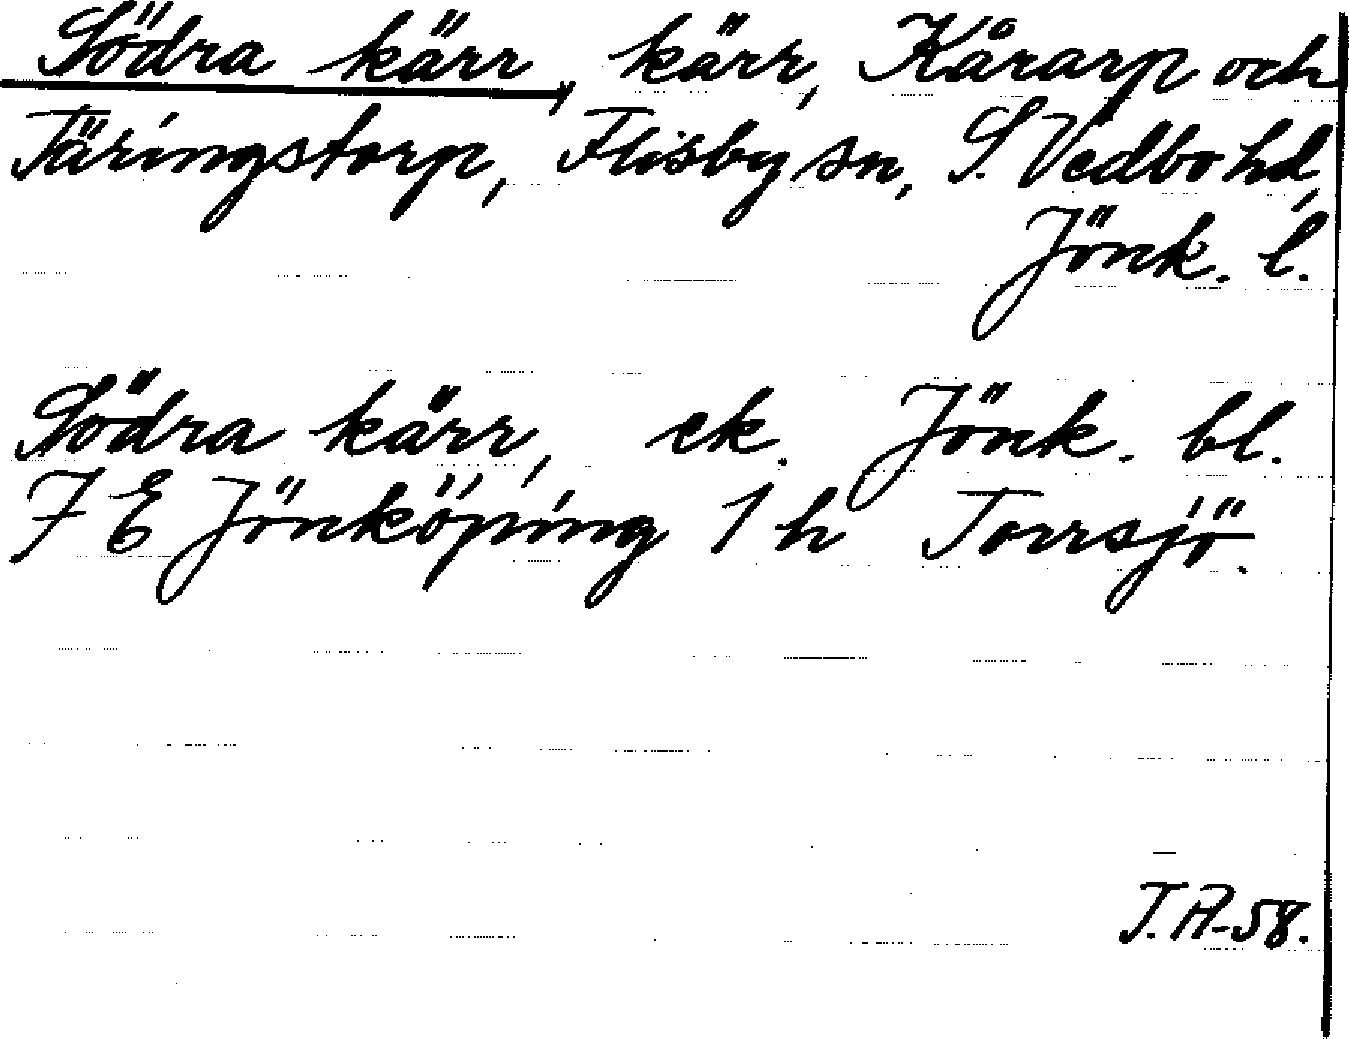 Södra kärr, kärr, Kårarp och
Täringstorp, Flisby sn, S. Vedbo hd,
Jönk. l.
Södra kärr, ek. Jönk. bl.
7 E Jönköping 1 h Torrsjö.
J.A-58.